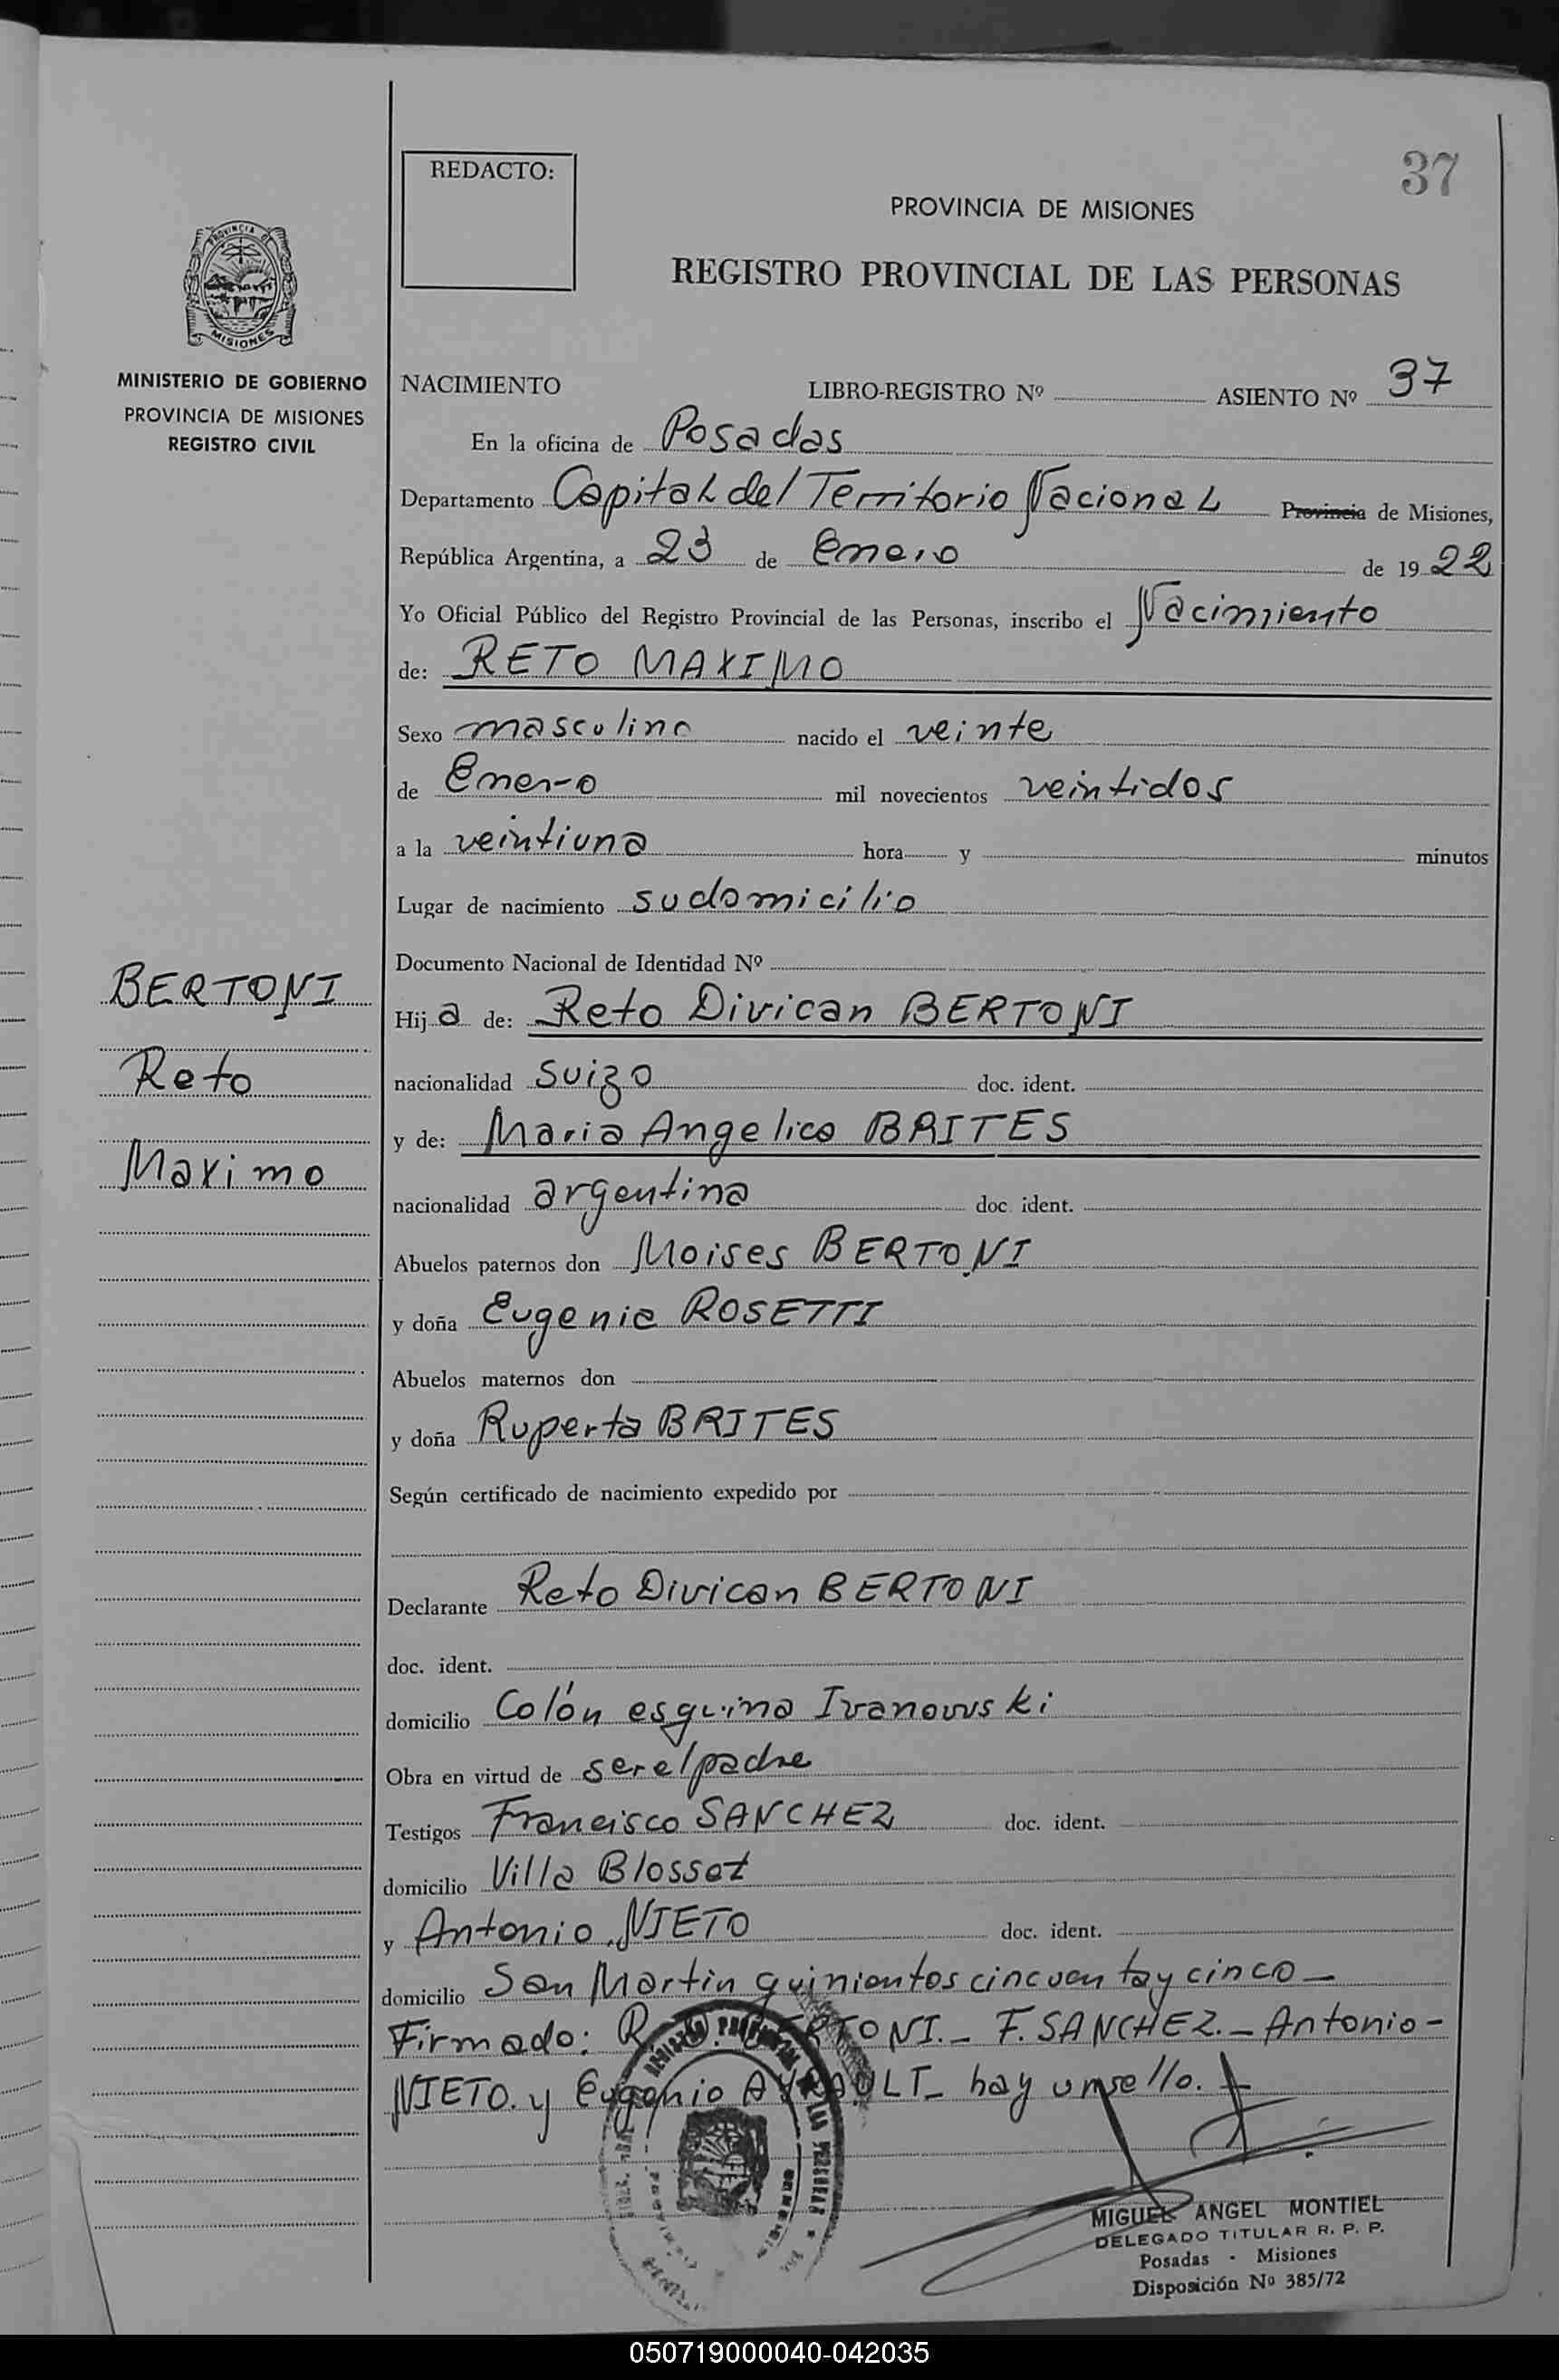 37
REDACTO:
PROVINCIA DE MISIONES
REGISTRO PROVINCIAL DE LAS PERSONAS
PROVINCIA DE
MISIONES
MINISTERIO DE GOBIERNO
PROVINCIA DE MISIONES
REGISTRO CIVIL
NACIMIENTO LIBRO-REGISTRO Nº ASIENTO Nº 37
En la oficina de Posadas
Departamento Capital del Territorio Nacional Provincia de Misiones,
República Argentina, a 23 de Enero de 1922
Yo Oficial Público del Registro Provincial de las Personas, inscribo el Nacimiento
de: RETO MAXIMO
Sexo masculino nacido el veinte
de Enero mil novecientos veintidos
a la veintiuna hora y minutos
Lugar de nacimiento su domicilio
Documento Nacional de Identidad Nº
BERTONI
Reto
Maximo
Hija de: Reto Divican BERTONI
nacionalidad suizo doc. ident.
y de: Maria Angelica BRITES
nacionalidad argentina doc. ident.
Abuelos paternos don Moises BERTONI
y doña Eugenia ROSETTI
Abuelos maternos don
y doña Ruperta BRITES
Según certificado de nacimiento expedido por
Declarante Reto Divican BERTONI
doc. ident.
domicilio Colón esquina Ivanowski
Obra en virtud de ser el padre
Testigos Francisco SANCHEZ doc. ident.
domicilio Villa Blosset
y Antonio NIETO doc. ident.
domicilio San Martin quinientos cincuenta y cinco -
Firmado: R. BERTONI.- F. SANCHEZ.- Antonio-
NIETO. y Eugenio hay un sello.-
MIGUEL ANGEL MONTIEL
DELEGADO TITULAR R. P. P.
Posadas - Misiones
Disposición Nº 385/72
050719000040-042035